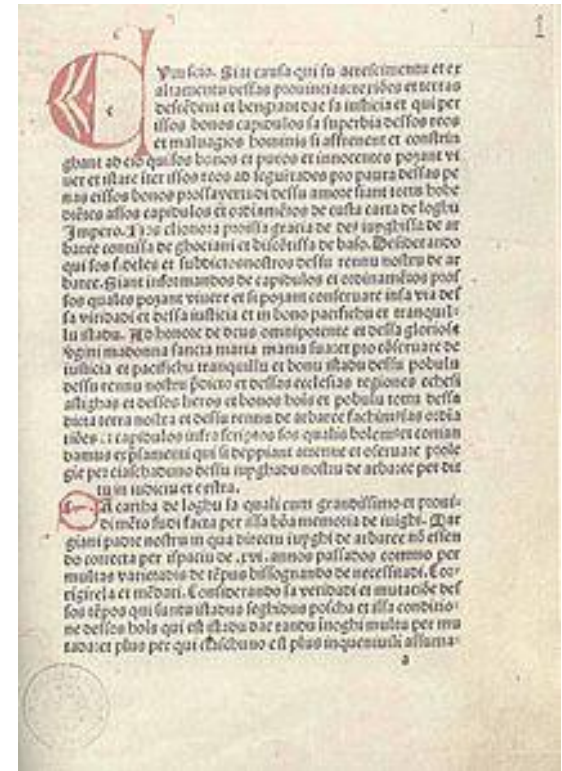 C
Vm scio. Siat causa qui su acrescimentu et ex
altamentu dessas prouincias: regiões et terras
descēdent et bengiant dae sa iusticia et qui per
issos bonos capidulos sa superbia dessos reos
et maluagios hominis si affrenent et constrin
ghant ad cio qui sos bonos et puros et innocentes pozant vi
uer et istare iter issos reos ad seguitados pro paura dessas pe
nas et issos bonos pro sa vertudi dessu amore siant totus hobe
diētes assos capidulos et ordiamētos de custa carta de loghu
Impero. Nos elionora pro issa gracia de deu iuyghissa de ar
baree contissa de ghociani et biscōtissa de baso. Desiderando
qui sos fideles et subdictos nostros dessu rennu nostru de ar
baree. Siant informandos de capidulos et ordinamētos pros
sos quales pozant viuere et si pozant conseruare in sa via des
sa viridadi et dessa iusticia et in bono pacifichu et tranquil-
lu istadu. Ad honore de deus omnipotente et dessa gloriosa
vgini madonna sancta maria mama sua: et pro cōseruare de
iusticia et pacifichu tranquillu et bonu istadu dessu pobulu
dessu rennu nostru p̄dicto et dessas ecclesias regiones echesi
astighas et dessos lieros et bonos hois et pobulu totu dessa
dicta terra nostra et dessu rennu de arbaree fachimus sas ordia
tiōes et capidulos infrascriptos sos qualis bolemus et coman
damus exp̄samenti qui si deppiant attenne et oseruare pro le
gie per ciaschaduno dessu iuyghadu nostru de arbaree per dis
tu in iudiciu et extra.
A cartha de loghu sa quali cum grandissimo et proui-
dimēto fudi facta per issa bōa memoria de iuighi. Mar
giani padre nostru in qua directu iuyghi de arbaree nō essen
do correcta per ispaciu de .xvi. annos passados commo per
multas varietadis de tēpus bisognando de necessitadi. Cor-
rigirela et mēdari. Considerando sa veridadi et mutaciōe des
sos tēpos qui suntu istadus seghidus poscha et issa conditio-
ne dessos hois qui est istadu dae tandu inoghi multu per mu
tada: et plus per qui ciaschuno est plus inqueniuili assuma-
a